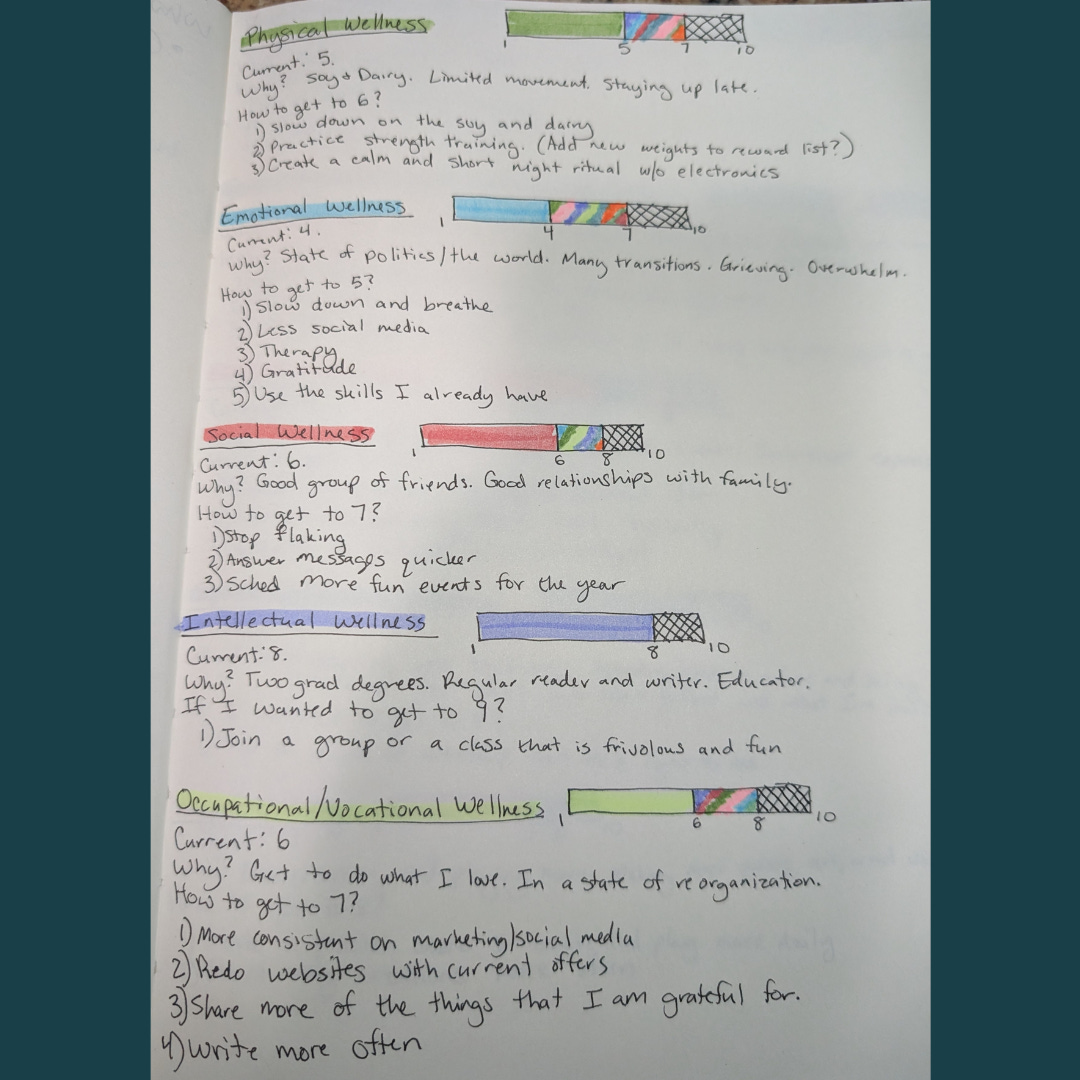 Physical Wellness
1 5 7 10
Current: 5.
Why? Soy + Dairy. Limited movement. Staying up late.
How to get to 6?
1) Slow down on the soy and dairy
2) Practice strength training. (Add new weights to reward list?)
3) Create a calm and short night ritual w/o electronics
Emotional Wellness
1 4 7 10
Current: 4.
Why? State of politics/the world. Many transitions. Grieving. Overwhelm.
How to get to 5?
1) Slow down and breathe
2) Less social media
3) Therapy
4) Gratitude
5) Use the skills I already have
Social Wellness
1 6 8 10
Current: 6.
Why? Good group of friends. Good relationships with family.
How to get to 7?
1) Stop flaking
2) Answer messages quicker
3) Sched more fun events for the year
Intellectual Wellness
1 8 10
Current: 8.
Why? Two grad degrees. Regular reader and writer. Educator.
If I wanted to get to 9?
1) Join a group or a class that is frivolous and fun
Occupational/Vocational Wellness
1 6 8 10
Current: 6
Why? Get to do what I love. In a state of reorganization.
How to get to 7?
1) More consistent on marketing/social media
2) Redo websites with current offers
3) Share more of the things that I am grateful for.
4) Write more often